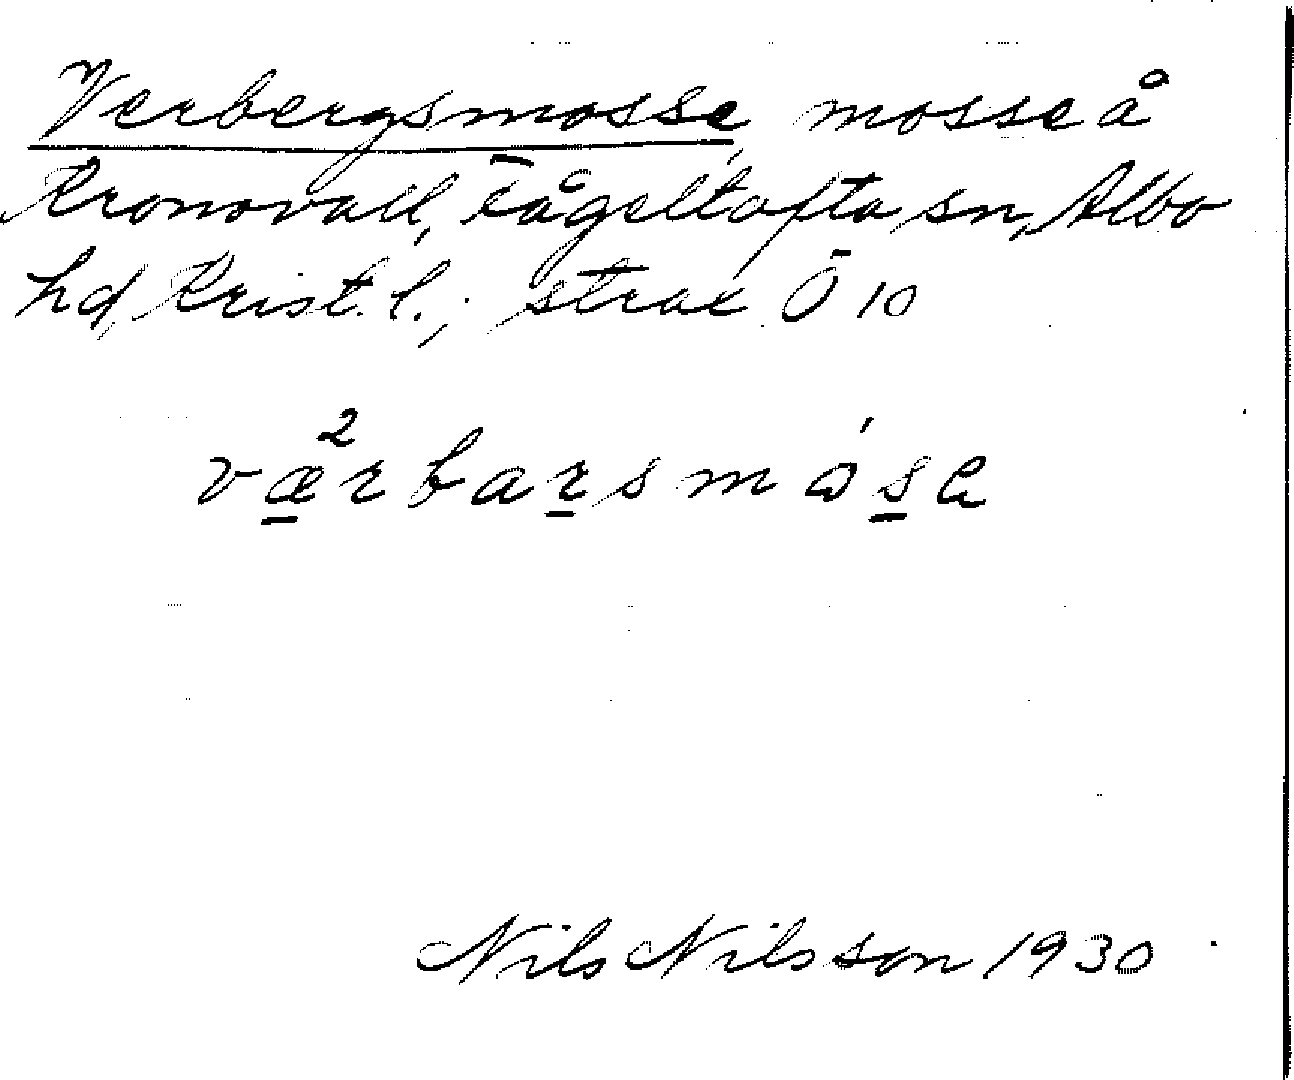 Verbergsmosse, mosse å
Kronovall, Fågeltofta sn, Albo
hd, Krist. l.; strax Ö 10
væ²rbarsmósa
Nils Nilsson 1930